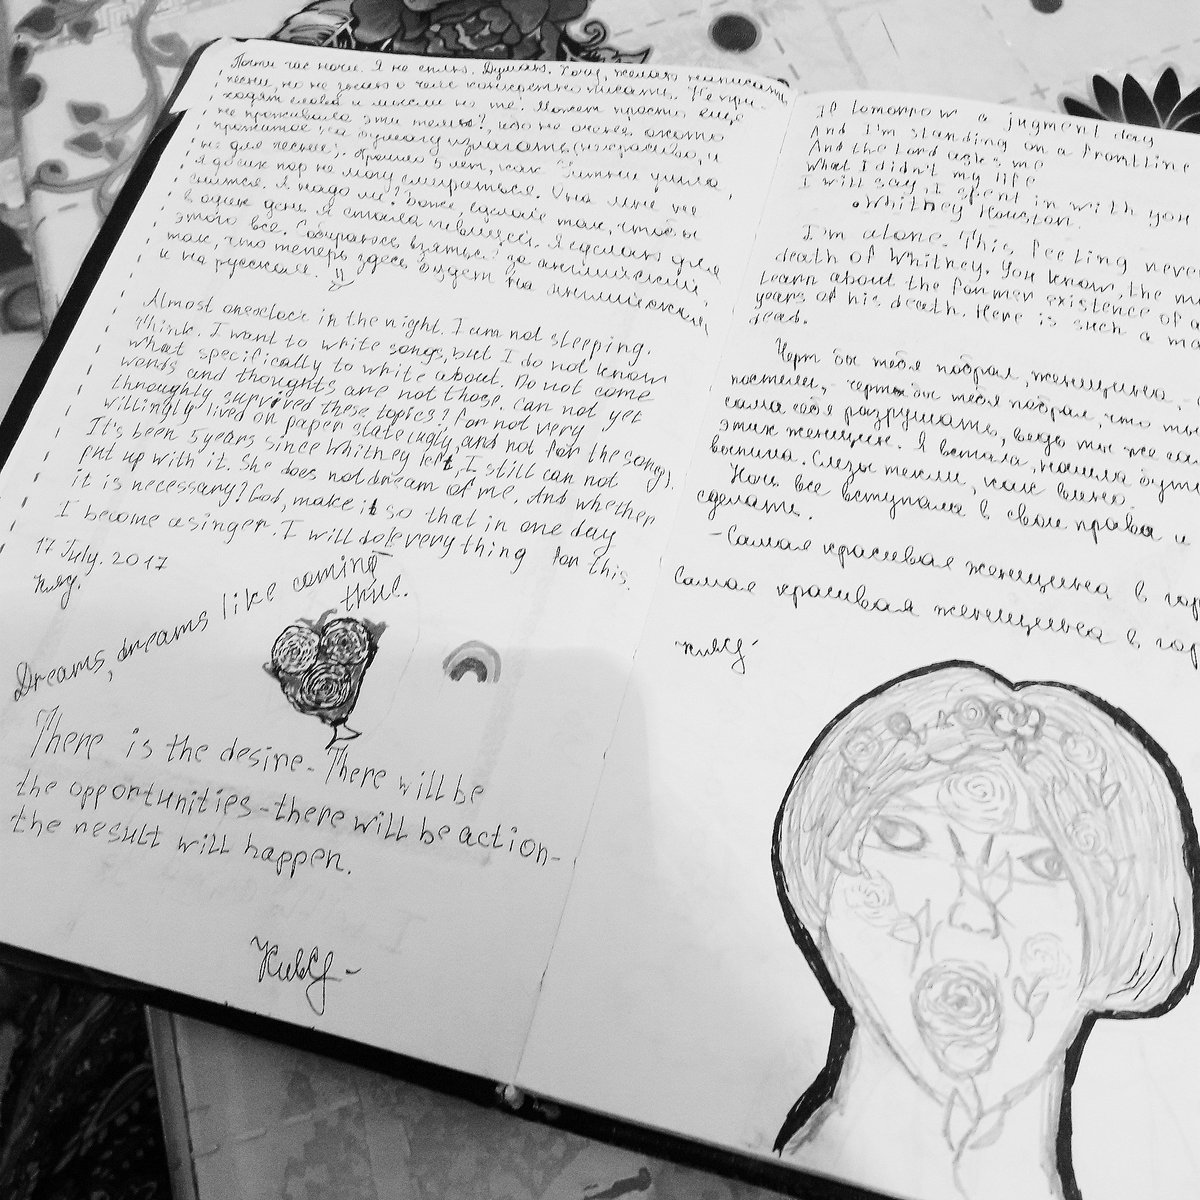 Почти час ночи. Я не сплю. Думаю. Хочу, желаю написать
песни, но не знаю о чем конкретно писать. Не при-
ходят слова и мысли не те. Может просто ещё
не проживала эти темы?, або не очень охото
прожитое на бумагу излагать (некрасиво, и
не для песней). Прошло 5 лет, как Уитни ушла,
я до сих пор не могу смириться. Она мне не
снится. А надо ли? Боже, сделай так, чтобы
в один день я стала певицей. Я сделаю для
этого все. Собираюсь взяться за английский,
так, что теперь здесь будет на английском
и на русском.
Almost oneoclock in the night. I am not sleeping.
Think. I want to write songs, but I do not know
what specifically to write about. Do not come
words and thoughts are not those. Can not yet
throughly survived these topics? For not very
willingly lived on paper state (ugly, and not for the song).
It's been 5 years since Whitney left, I still can not
put up with it. She does not dream of me. And whether
it is necessary? God, make it so that in one day
I become a singer. I will do everything for this.
17 July. 2017
Dreams, dreams like coming
true.
There is the desire - There will be
the opportunities - there will be action -
the result will happen.
If tomorrow a jugment day
And I'm standing on a frontline
And the Lord ask's me
What I didn't my life
I will say, I spent in with you
• Whitney Houston.
I'm alone. This, feeling never
death of Whitney. You know, the
learn about the former existence of
years of his death. Here is such a
dead.
Черт бы тебя побрал, женщина,
постели, - черт бы тебя побрал, что ты
сама себя разрушать, ведь ты же
этих женщин. Я встала, нашла
выпила. Слезы текли, как вино.
Ночь все вступала в свои права и
сделать.
- Самая красивая женщина в
Самая красивая женщина в